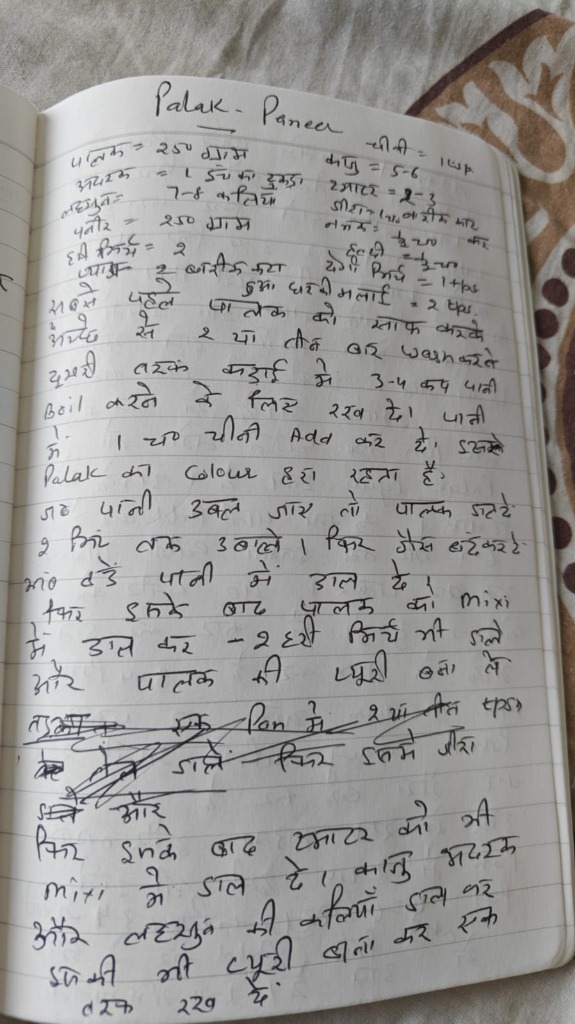 Palak - Paneer
चीनी = 1 चम
पालक = 250 ग्राम
काजु = 5-6
अदरक = 1 इंच का टुकड़ा
टमाटर = 2-3
लहसुन = 7-8 कलियां
पनीर = 250 ग्राम
नमक =
हरी मिर्च = 2
हल्दी = 1/2 चम
प्याज = 2 बारीक कटा
देगी मिर्च = 1 tps
मलाई = 2 tps.
सबसे पहले पालक को साफ करके
अच्छे से 2 या तीन बार wash करले
दुसरी तरफ कड़ाई में 3-4 कप पानी
Boil करने के लिए रख दे। पानी
में 1 चम चीनी Add कर दे। इससे
Palak का colour हरा रहता है.
जब पानी उबल जाए तो पालक डालदे
2 मिंट तक उबाले। फिर गैस बंद करदे
ठंडे पानी में डाल दे।
फिर इसके बाद पालक को mixi
में डाल कर - 2 हरी मिर्च भी डाले
और पालक की प्यूरी बना ले
एक Pan में 2 या तीन tps
तेल डाले फिर इसमे जीरा
डाले और
फिर इसके बाद टमाटर को भी
mixi में डाल दे। काजु अदरक
और लहसुन की कलियाँ डाल कर
इसकी भी प्यूरी बना कर एक
तरफ रख दें.